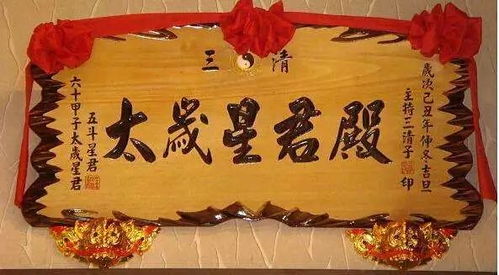 三清
太歲星君殿
歲次己丑年仲冬吉旦
主持三清子 印
五斗星君
六十甲子太歲星君